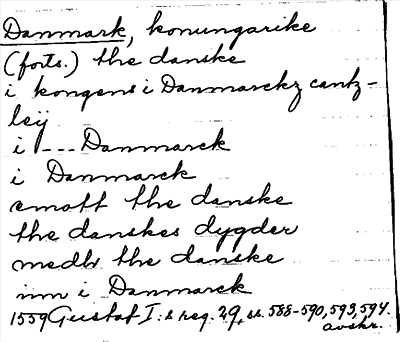 Danmark, konungarike
(forts.) the danske
i kongens i Danmarckz cantz-
leÿ
i --- Danmarck
i Danmarck
emott the danske
the danskes dygder
medh the danske
inn i Danmarck
1559 Gustaf I:s reg. 29, ss. 588-590, 593, 594.
avskr.